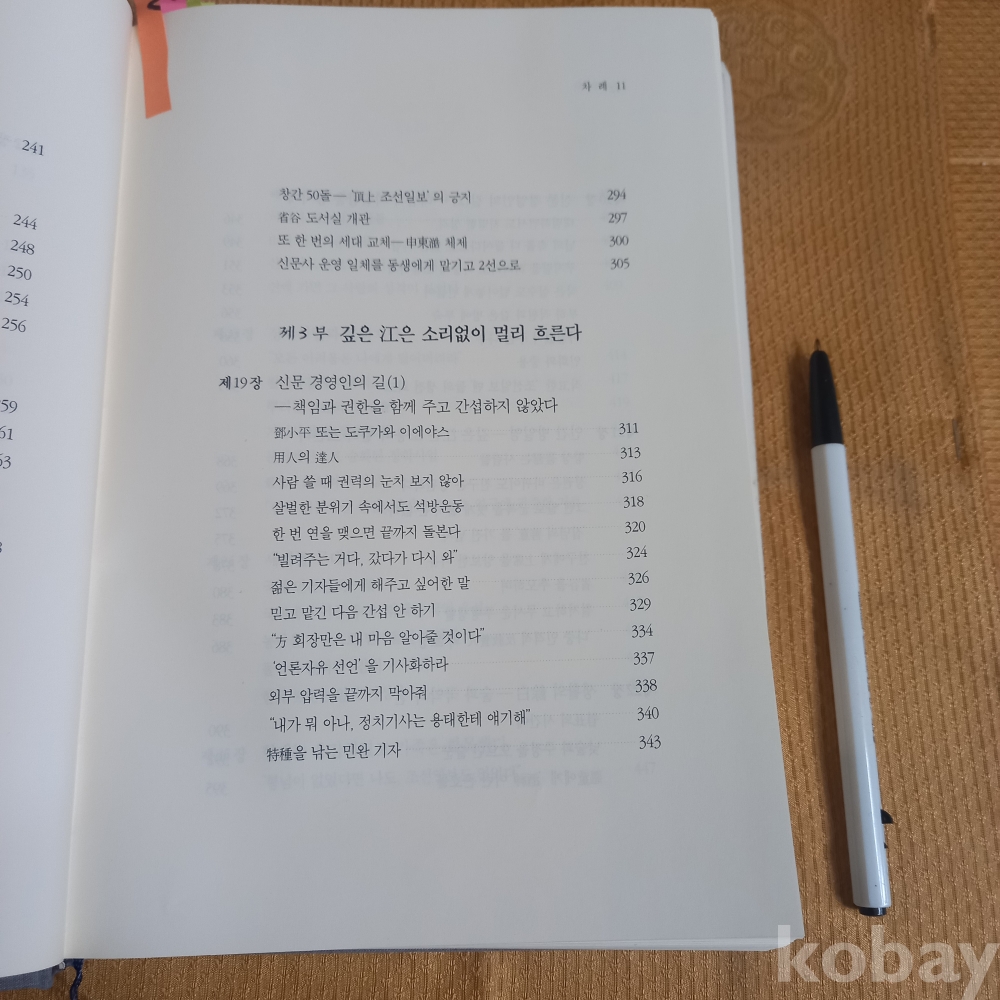 241
244
248
250
254
256
차 례 11
창간 50돌—‘頂上 조선일보’의 긍지 294
省谷 도서실 개관 297
또 한 번의 세대 교체—申東澔 체제 300
신문사 운영 일체를 동생에게 맡기고 2선으로 305
제3부 깊은 江은 소리없이 멀리 흐른다
제19장 신문 경영인의 길(1)
—책임과 권한을 함께 주고 간섭하지 않았다
鄧小平 또는 도쿠가와 이에야스 311
用人의 達人 313
사람 쓸 때 권력의 눈치 보지 않아 316
살벌한 분위기 속에서도 석방운동 318
한 번 연을 맺으면 끝까지 돌본다 320
“빌려주는 거다, 갔다가 다시 와” 324
젊은 기자들에게 해주고 싶어한 말 326
믿고 맡긴 다음 간섭 안 하기 329
“方 회장만은 내 마음 알아줄 것이다” 334
‘언론자유 선언’을 기사화하라 337
외부 압력을 끝까지 막아줘 338
“내가 뭐 아나, 정치기사는 용태한테 얘기해” 340
特種을 낚는 민완 기자 343
kobay